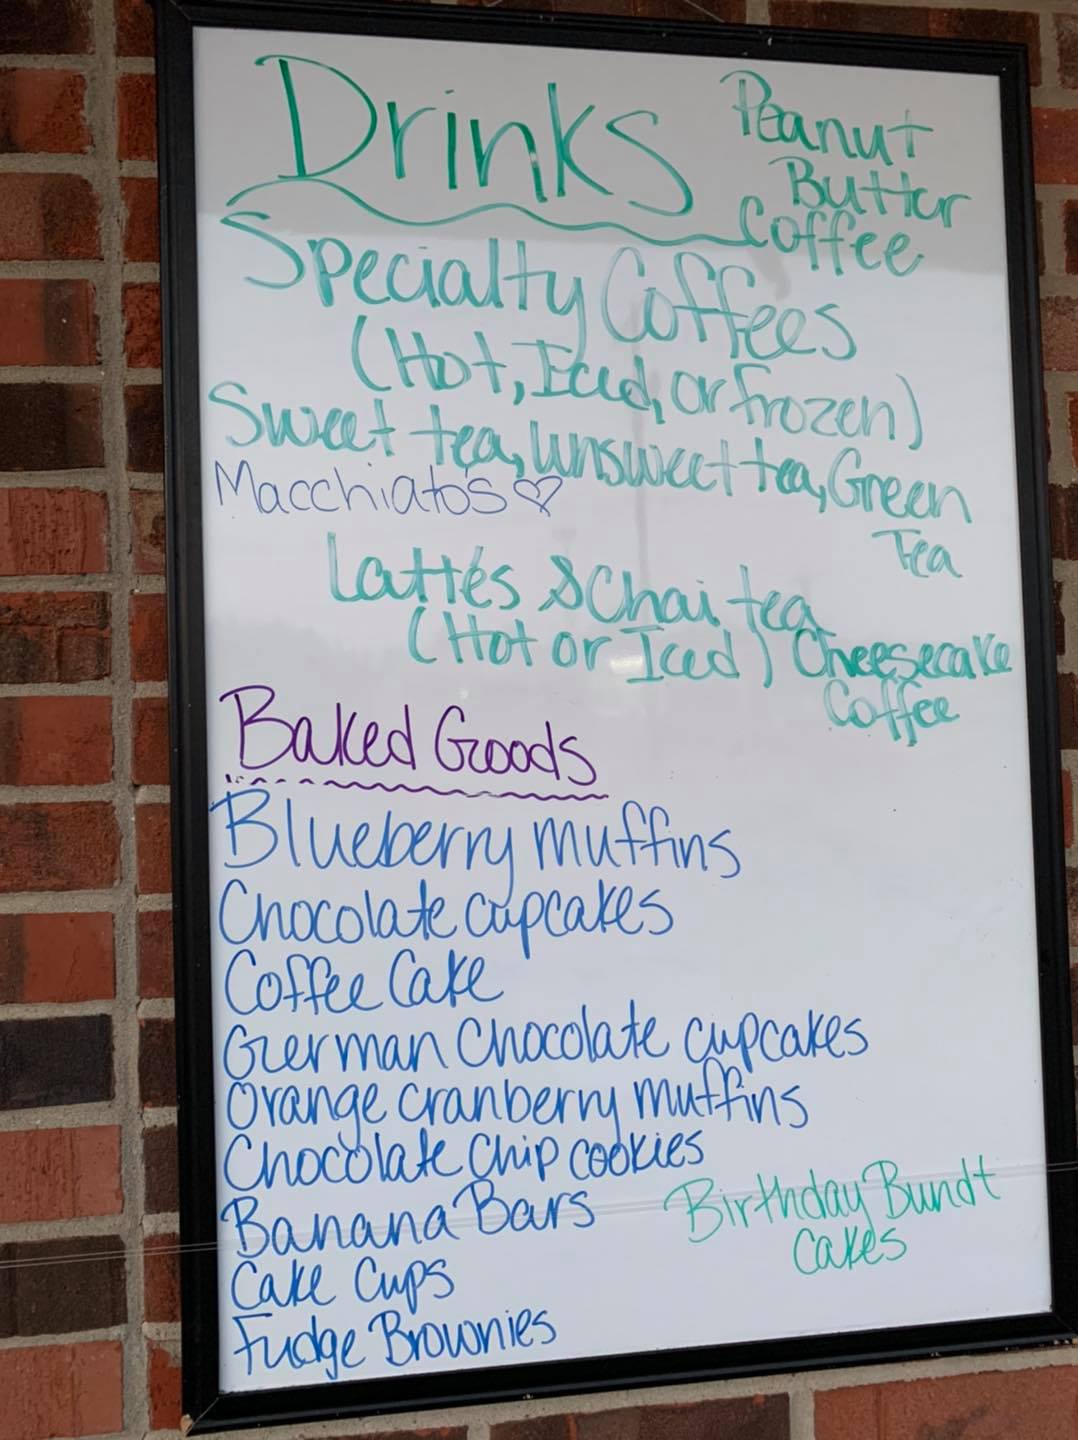 Drinks
Peanut
Butter
Coffee
Specialty Coffees
(Hot, Iced, or frozen)
Sweet tea, unsweet tea, Green
Tea
Macchiato's ♡
Lattés & Chai tea
(Hot or Iced)
Cheesecake
Coffee
Baked Goods
Blueberry muffins
Chocolate cupcakes
Coffee Cake
German Chocolate cupcakes
Orange cranberry muffins
Chocolate Chip cookies
Banana Bars
Birthday Bundt
Cakes
Cake Cups
Fudge Brownies